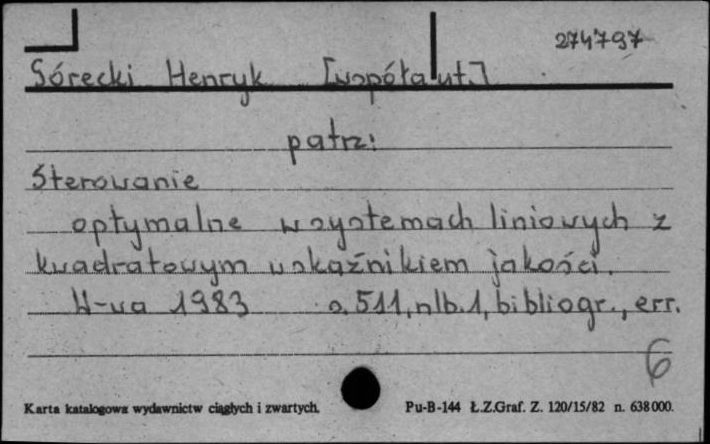 274797
Sórecki Henryk [współaut.]
patrz:
Sterowanie
optymalne w systemach liniowych z
kwadratowym wskaźnikiem jakości.
W-wa 1983 s. 511, nlb. 1, bibliogr., err.
6
Karta katalogowa wydawnictw ciągłych i zwartych. Pu-B-144 Ł.Z.Graf. Z. 120/15/82 n. 638000.